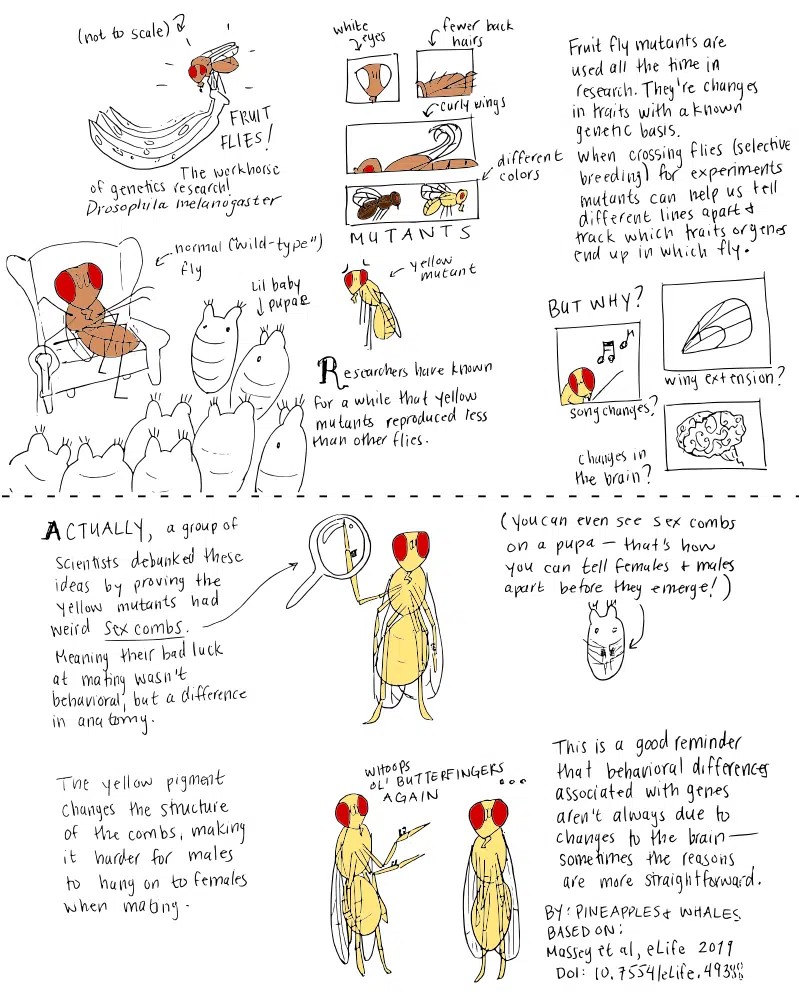 (not to scale)
FRUIT
FLIES!
The workhorse
of genetics research!
Drosophila melanogaster
white
eyes
fewer back
hairs
curly wings
different
colors
MUTANTS
Fruit fly mutants are
used all the time in
research. They're changes
in traits with a known
genetic basis.
When crossing flies (selective
breeding) for experiments
mutants can help us tell
different lines apart &
track which traits or genes
end up in which fly.
normal ("wild-type")
fly
Lil baby
pupae
yellow
mutant
Researchers have known
for a while that yellow
mutants reproduced less
than other flies.
BUT WHY?
song changes?
wing extension?
changes in
the brain?
ACTUALLY, a group of
scientists debunked these
ideas by proving the
yellow mutants had
weird sex combs.
Meaning their bad luck
at mating wasn't
behavioral, but a difference
in anatomy.
(you can even see sex combs
on a pupa — that's how
you can tell females & males
apart before they emerge!)
The yellow pigment
changes the structure
of the combs, making
it harder for males
to hang on to females
when mating.
WHOOPS
OL' BUTTERFINGERS
AGAIN
...
This is a good reminder
that behavioral differences
associated with genes
aren't always due to
changes to the brain —
sometimes the reasons
are more straightforward.
BY: PINEAPPLES & WHALES
BASED ON:
Massey et al, eLife 2019
DOI: 10.7554/eLife.49388